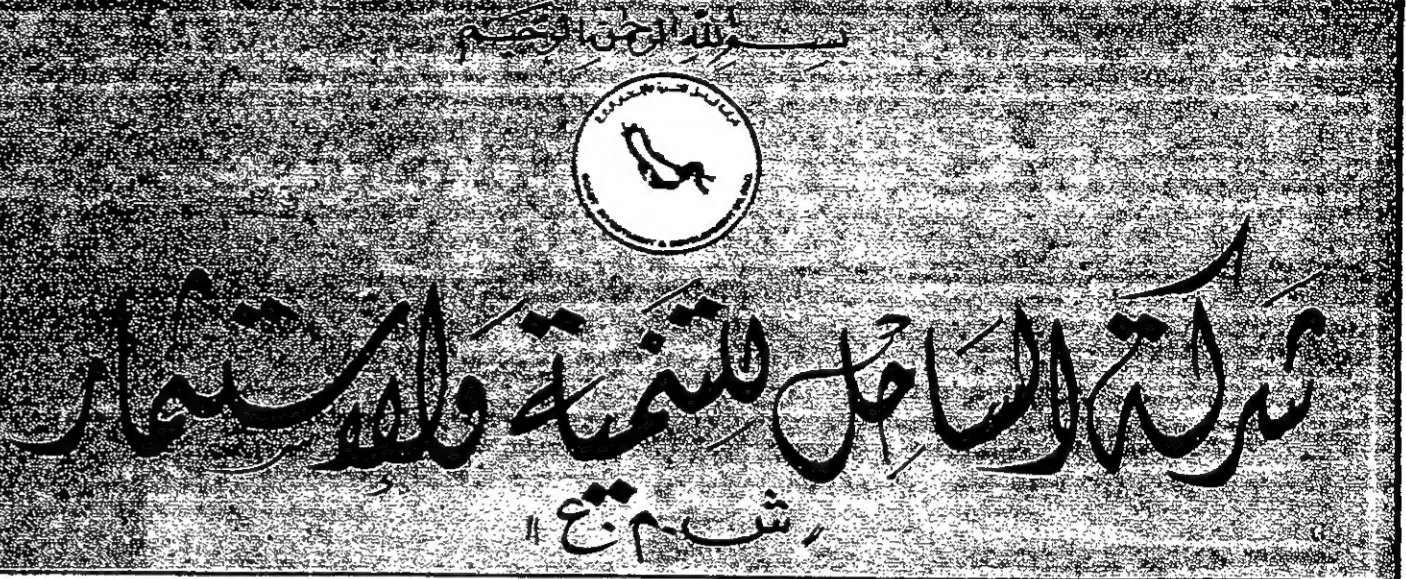 بسم الله الرحمن الرحيم
شركة الساحل للتنمية والإستثمار
"ش.م.ع"